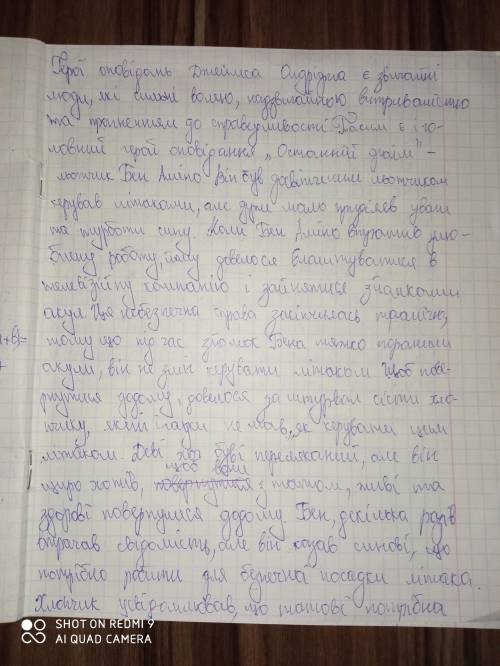 Герої оповідань Джеймса Олдріджа є звичайні
люди, які сильні волею, надзвичайною витривалістю
та прагненням до справедливості. Таким є і го-
ловний герой оповідання „Останній дюйм" –
льотчик Бен Амліо. Він був досвідченим льотчиком
керував літаками, але дуже мало приділяв уваги
та турботи сину. Коли Бен Амліо втратив улю-
блену роботу, йому довелося влаштуватися в
телевізійну компанію і зайнятися зйомками
акул. Ця небезпечна справа закінчилась трагічно,
тому що під час зйомок Бена тяжко поранили
акули, він не зміг керувати літаком. Щоб пове-
рнутися додому, довелося за штурвал сісти хло-
пчику, який гадки не мав, як керувати цим
літаком. Деві був переляканий, але він
щиро хотів, щоб вони з татом, живі та
здорові повернулися додому. Бен, декілька разів
втрачав свідомість, але він казав синові, що
потрібно робити для безпечної посадки літака.
Хлопчик усвідомлював, що татові потрібна
+6)=
SHOT ON REDMI 9
AI QUAD CAMERA